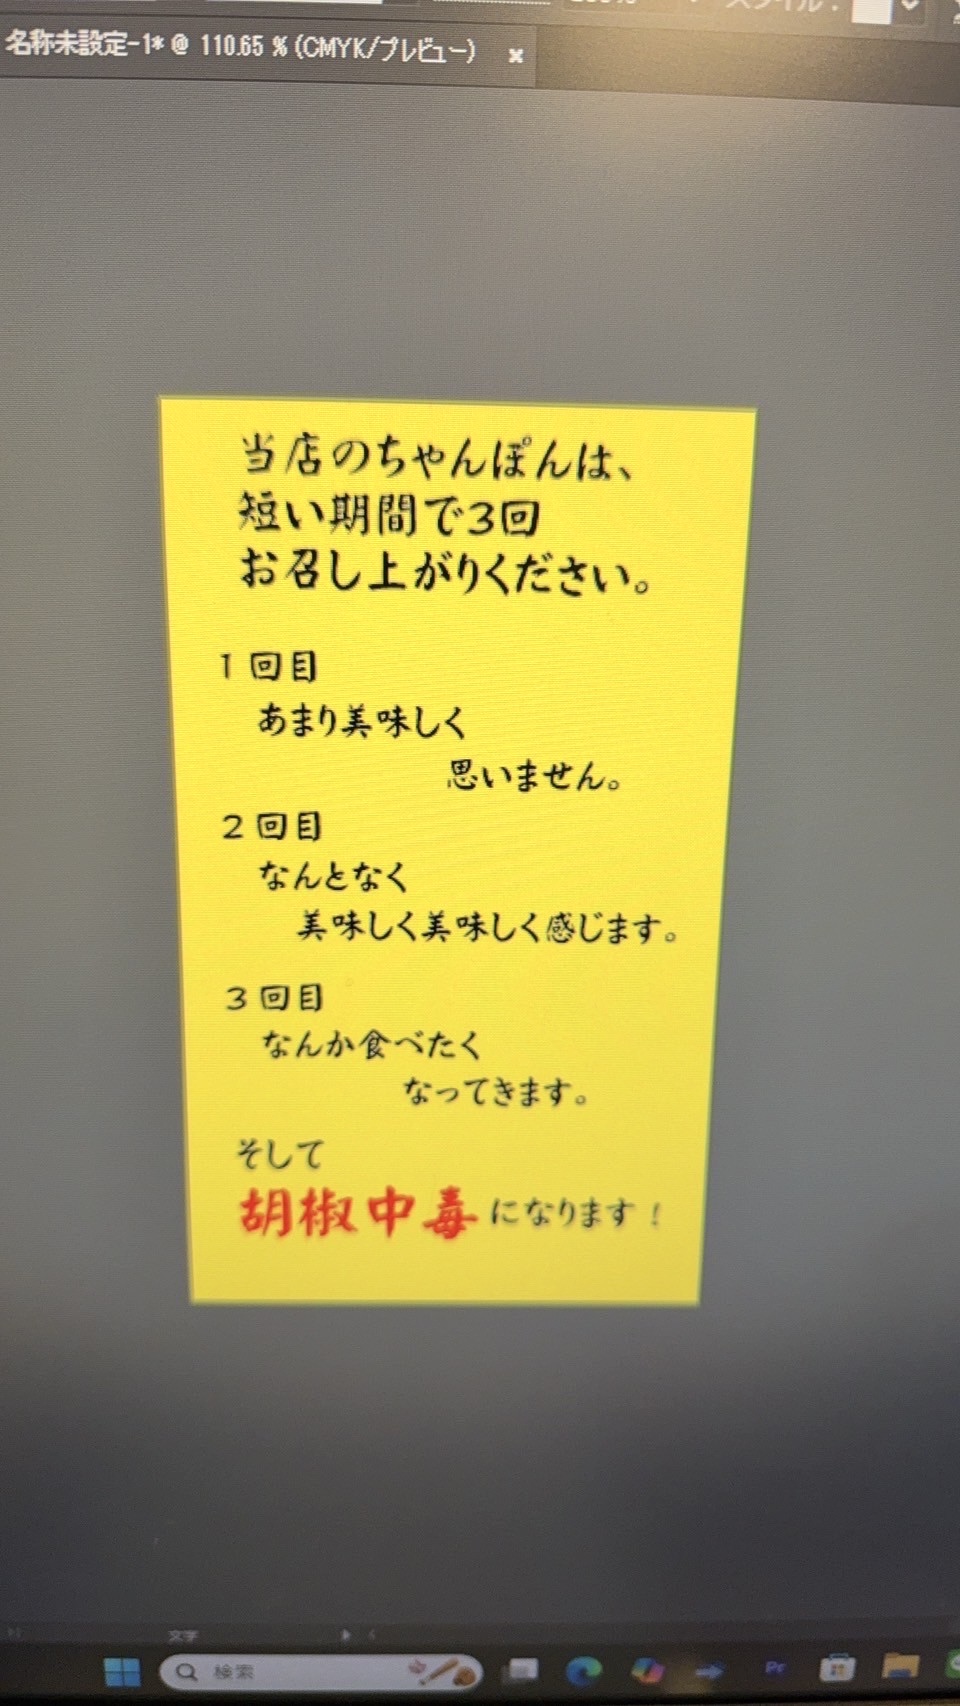 名称未設定-1* @ 110.65 % (CMYK/プレビュー) ×
当店のちゃんぽんは、
短い期間で3回
お召し上がりください。
1回目
あまり美味しく
思いません。
2回目
なんとなく
美味しく美味しく感じます。
3回目
なんか食べたく
なってきます。
そして
胡椒中毒になります!
文字
検索
Pr